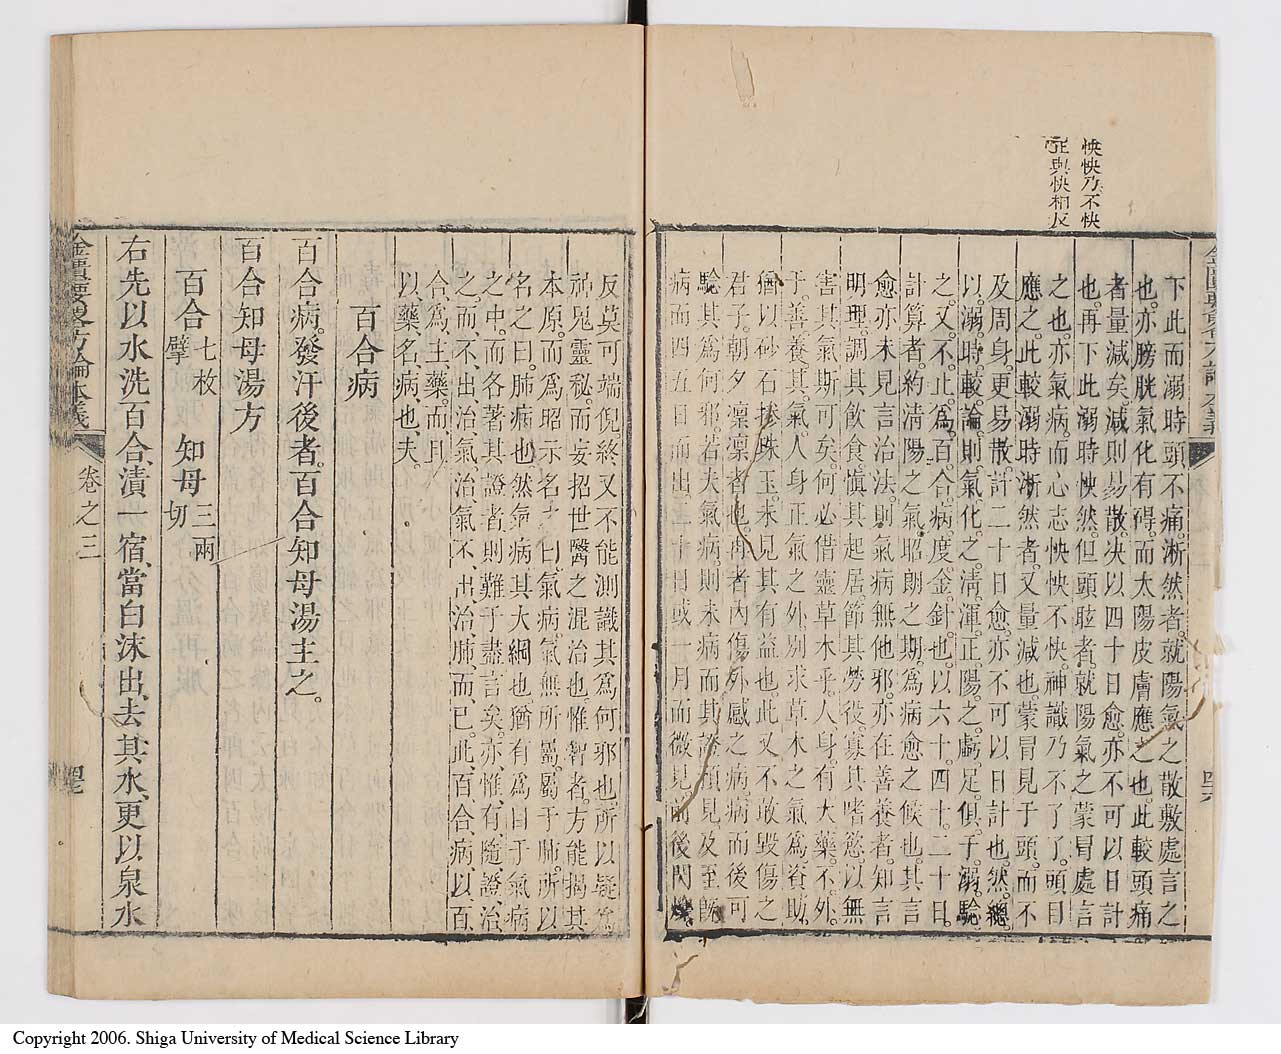 怏怏乃不快
正與快相反
下此而溺時頭不痛淅然者。就陽氣之散敷處言之
也。亦膀胱氣化有碍。而太陽皮膚應之也。此較頭痛
者量減矣。減則易散。决以四十日愈。亦不可以日計
也。再下此溺時快然。但頭眩者。就陽氣之蒙冒處言
之也。亦氣病。而心志怏怏不快。神識乃不了了。頭日
應之。此較溺時淅然者。又量減也。蒙冒見于頭。而不
及周身。更易散。計二十日愈。亦不可以日計也。然總
以。溺。時。較。論。則。氣。化。之。淸。渾。正。陽。之。虧。足。俱。于。溺。驗
之。又。不。止。爲。百。合。病。度。金。針。也。以。六。十。四。十。二。十。日。
計算者。約淸陽之氣。昭朗之期。爲病愈之候也。其言
愈亦未見言治法。則氣病無他邪。亦在善養者。知言
明理。調其飲食。愼其起居。節其勞役。寡其嗜慾。以無
害其氣斯可矣。何必借靈草木乎。人身。有大藥。不。外。
于。善。養。其。氣。人身正氣之外。別求草木之氣爲資助。
猶以砂石摻珠玉。未見其有益也。此又不敢毀傷之
君子。朝夕凛凛者也。再者內傷外感之病。病而後可
驗其爲何邪。若夫氣病。則未病而其證預見。及至旣
病而四五日而出。二十日或一月而微見。前後閃爍。
反莫可端倪。終又不能測識其爲何邪也。所以疑爲
神鬼靈秘。而妄招世醫之混治也。惟智者。方能揭其
本原。而爲昭示名之曰。氣病。氣無所屬。屬于肺。所以
名之曰。肺病也。然氣病其大綱也。猶有爲日于氣病
之中。而各著其證者。則難于盡言矣。亦。惟。有。隨。證。治
之。而。不。出治氣。治氣不。出。治。肺。而。已。此。百。合。病。以。百。
合。爲。主。藥。而。且
以。藥。名。病。也。夫。
百合病
百合病。發汗後者。百合知母湯主之。
百合知母湯方
百合七枚擘　知母三兩切
右先以水洗百合、漬一宿、當白沫出、去其水、更以泉水
金匱要畧方論本義　卷之三